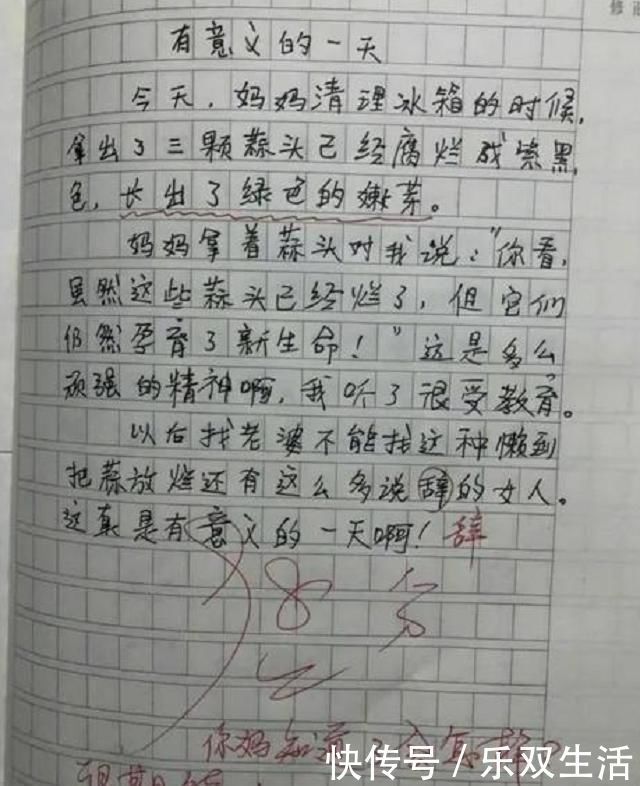 修改
有意义的一天
今天，妈妈清理冰箱的时候，
拿出了三颗蒜头已经腐烂成紫黑
色，长出了绿色的嫩芽。
妈妈拿着蒜头对我说："你看，
虽然这些蒜头已经烂了，但它们
仍然孕育了新生命！"这是多么
顽强的精神啊，我听了很受教育。
以后找老婆不能找这种懒到
把蒜放烂还有这么多说辞的女人。
这真是有意义的一天啊！辞
28分
你妈知道了会怎样？
快传号/乐双生活